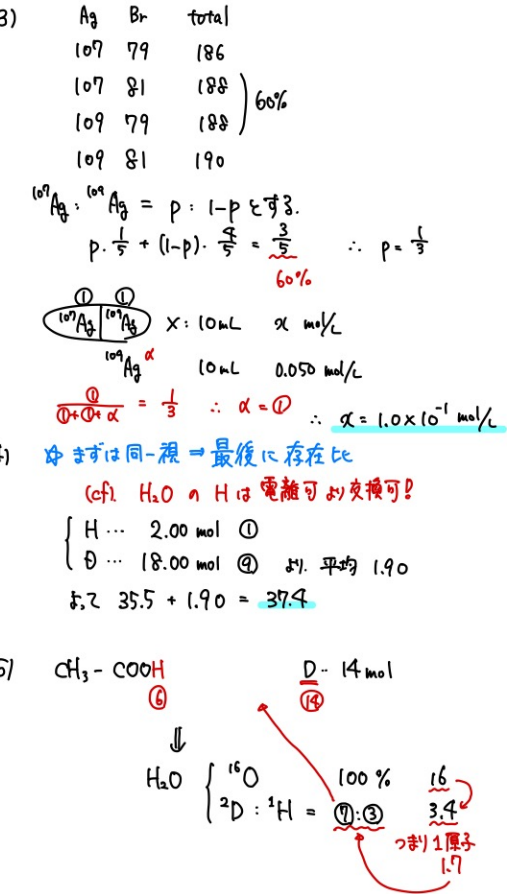 3)
Ag Br total
107 79 186
107 81 188
60%
109 79 188
109 81 190
¹⁰⁷Ag : ¹⁰⁹Ag = p : 1-p とする.
p・1/5 + (1-p)・4/5 = 3/5 ∴ p = 1/3
60%
① ①
¹⁰⁷Ag ¹⁰⁹Ag X : 10mL x mol/L
¹⁰⁹Ag α 10mL 0.050 mol/L
①/(①+①+α) = 1/3 ∴ α = ① ∴ x = 1.0×10⁻¹ mol/L
まずは同一視 ⇒ 最後に存在比
(cf). H₂O の H は電離可より交換可!
H … 2.00 mol ①
D … 18.00 mol ⑨ より. 平均 1.90
よって 35.5 + 1.90 = 37.4
5)
CH₃ - COOH D‥ 14mol
⑥ ⑭
⇓
H₂O ¹⁶O 100% 16
²D : ¹H = ⑦:③ 3.4
つまり1原子
1.7